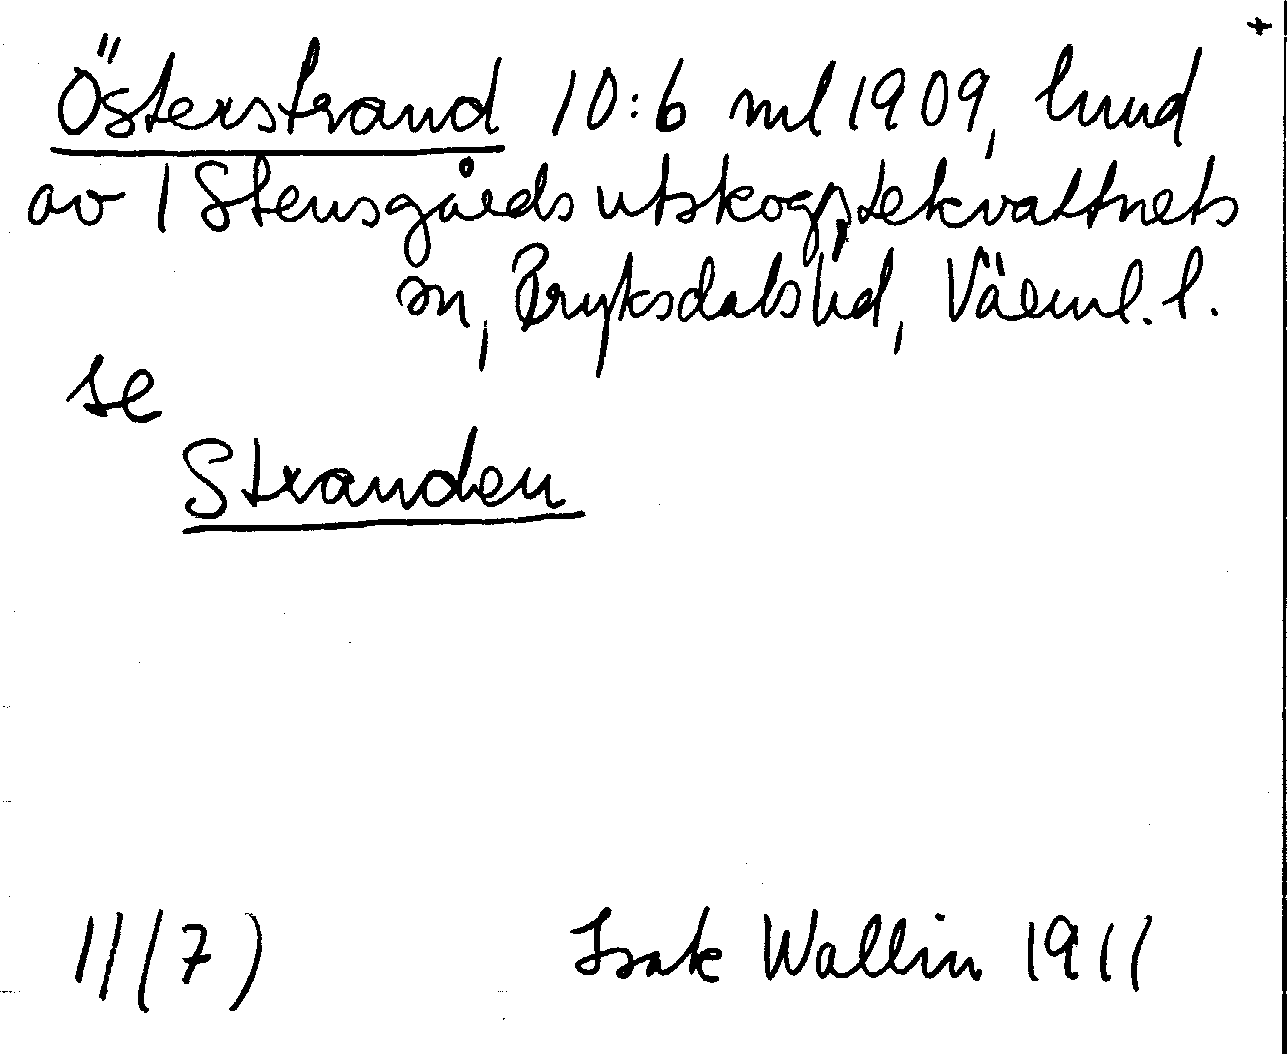 +
Österstrand 10:6 ml 1909, hmd
av 1 Stensgårds utskog, Lekvattnets
sn, Fryksdals hd, Värml. l.
se
Stranden
11(7) Isak Wallin 1911